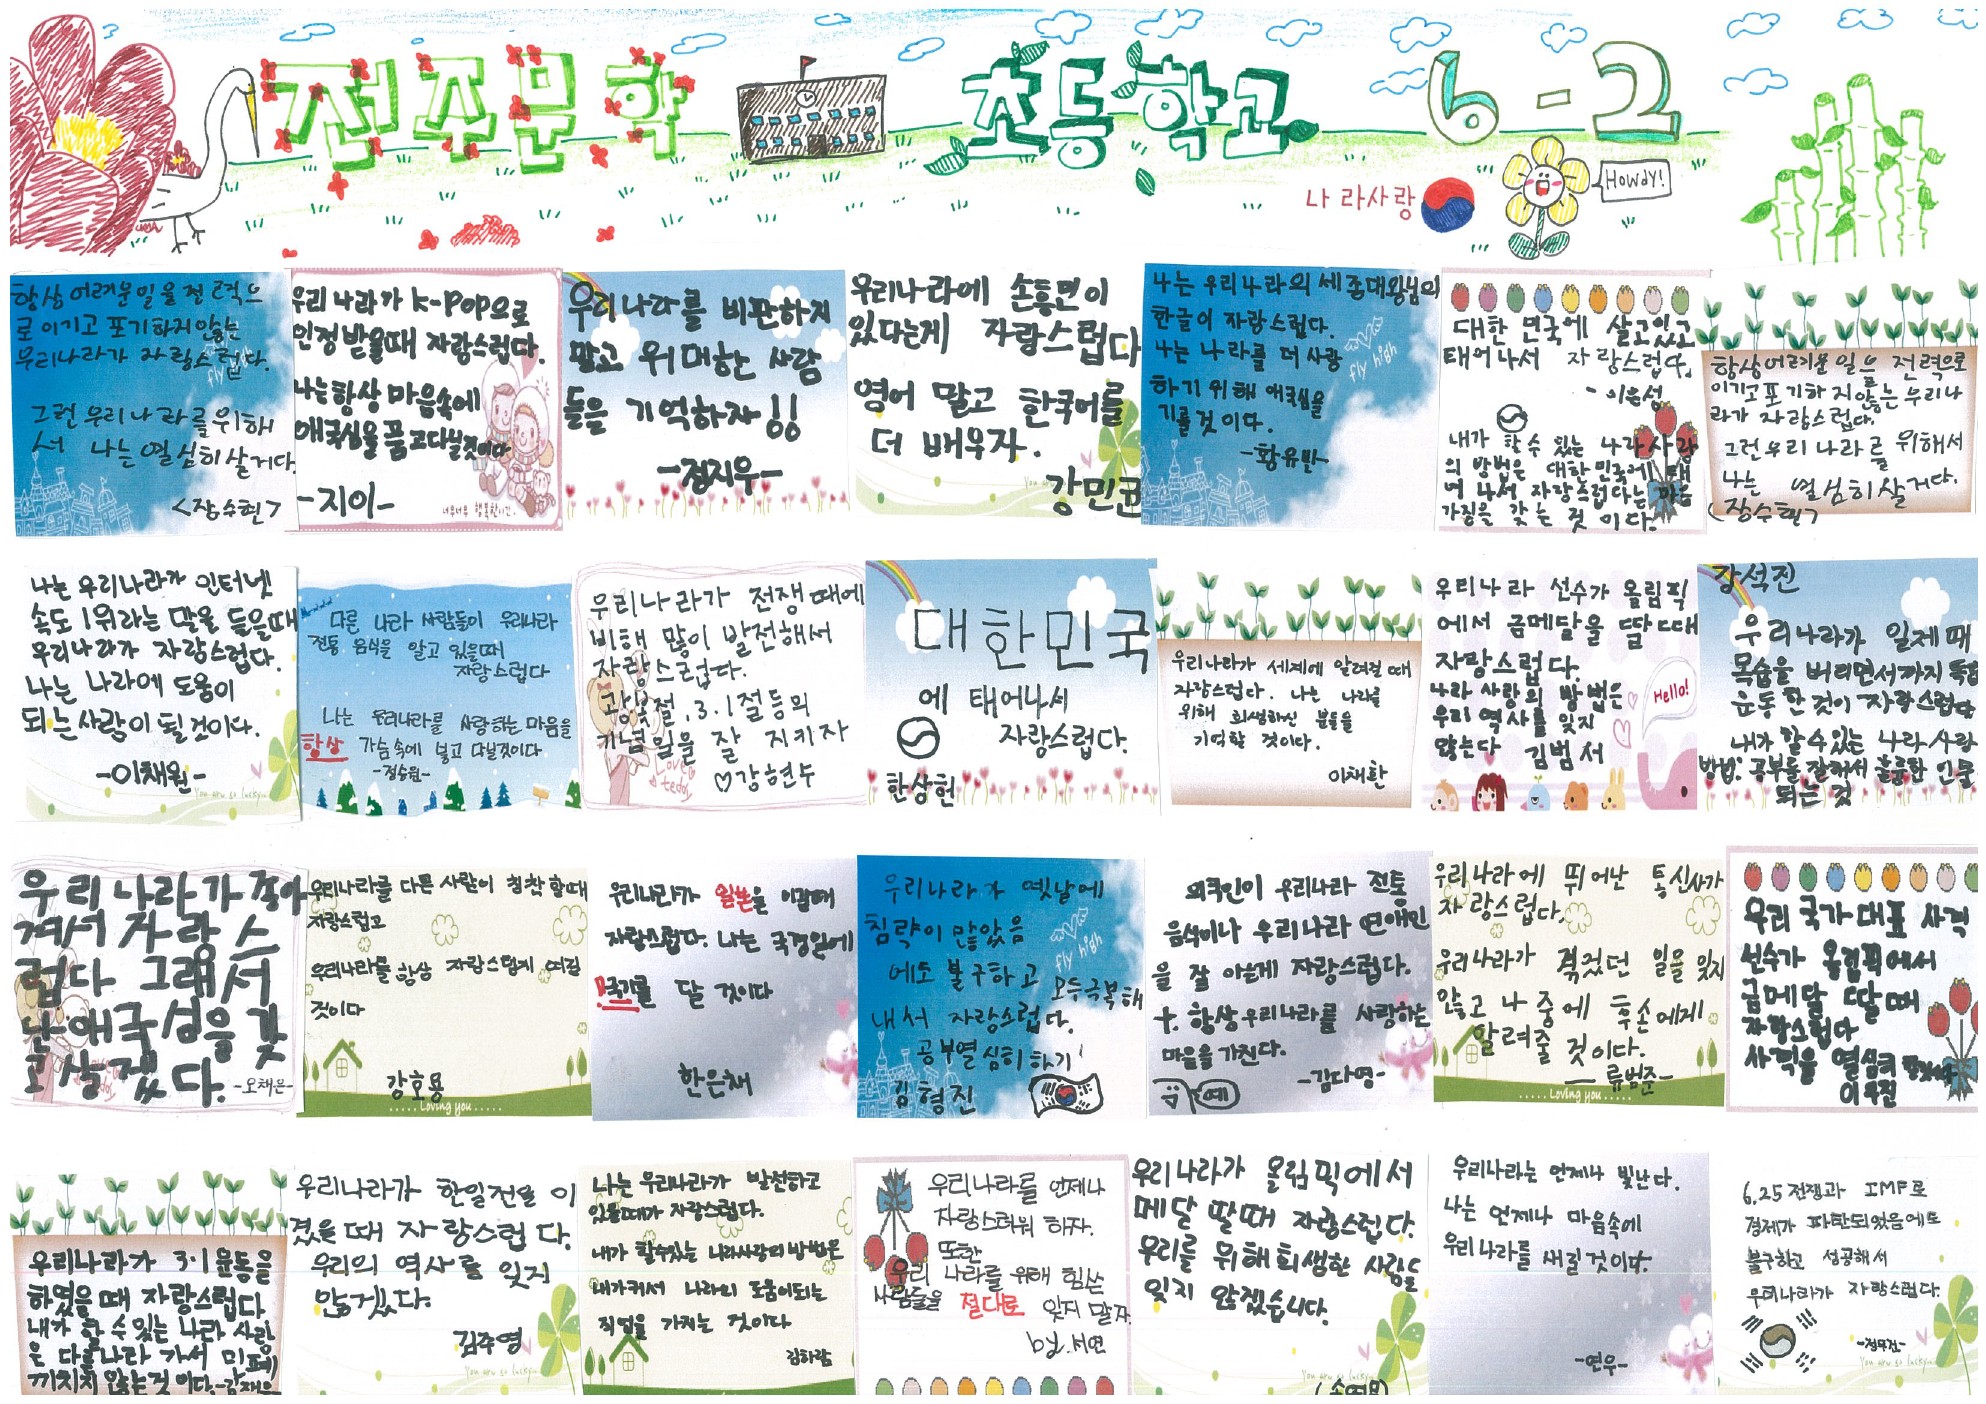 전주문학 초등학교 6-2
나라사랑
Howdy!
항상 어려운일을 전력으
로 이기고 포기하지않는
우리나라가 자랑스럽다.
그런 우리나라를위해
서 나는 열심히살거다.
<장수현>
fly high
우리나라가 K-POP으로
인정받을때 자랑스럽다.
나는항상 마음속에
애국심을 품고다닐것이다
-지이-
너무너무 행복한시간.
우리나라를 비판하지
말고 위대한 사람
들을 기억하자!!
-정지우-
우리나라에 손흥민이
있다는게 자랑스럽다
영어 말고 한국어를
더 배우자.
강민균
나는 우리나라의 세종대왕님의
한글이 자랑스럽다.
나는 나라를 더 사랑
하기 위해 애국심을
기를것 이다.
-황유반-
fly high
대한 민국에 살고있고
태어나서 자랑스럽다.
- 이음성
내가 할수 있는 나라사랑
의 방법은 대한민국에 태
어 나서 자랑스럽다는 마음
가짐을 갖는 것 이다.
항상어려운 일을 전력으로
이기고포기하지않는우리나
라가 자랑스럽다.
그런우리나라를 위해서
나는 열심히살거다.
<장수현>
나는 우리나라가 인터넷
속도 1위라는 말을 들을때
우리나라가 자랑스럽다.
나는 나라에 도움이
되는사람이 될것이다.
-이채원-
다른 나라 사람들이 우리나라
전통 음식을 알고 있을때
자랑스럽다
나는 우리나라를 사랑하는 마음을
항상 가슴속에 넣고 다닐것이다
-정승원-
우리나라가 전쟁때에
비해 많이 발전해서
자랑스럽다.
광복절, 3.1절등의
기념일을 잘 지키자
♡강현수
Love
teddy
대한민국
에 태어나서
자랑스럽다.
한상헌
우리나라가 세계에 알려질때
자랑스럽다. 나는 나라를
위해 희생하신 분들을
기억할 것이다.
이채환
우리나라 선수가 올림픽
에서 금메달을 딸때
자랑스럽다.
나라 사랑의 방법은
우리 역사를 잊지
않는다 김범서
Hello!
강석진
우리나라가 일제때
목숨을 버리면서까지 독립
운동 한것이 자랑스럽다
내가 할수있는 나라사랑
방법: 공부를 잘해서 훌륭한 인물
되는 것
우리나라가 좋아
져서 자랑스
럽다 그래서
난애국심을 갖
고살겠다. -오채은-
우리나라를 다른 사람이 칭찬 할때
자랑스럽고
우리나라를 항상 자랑스럽게 여길
것이다
강호용
.....Loving you.....
우리나라가 일본을 이길때
자랑스럽다. 나는 국경일에
국기를 달 것이다
한은채
우리나라가 옛날에
침략이 많았음
에도 불구하고 모두극복해
내서 자랑스럽다.
공부열심히하기
김형진
fly high
외국인이 우리나라 전통
음식이나 우리나라 연예인
을 잘 아는게 자랑스럽다.
+. 항상우리나라를 사랑하는
마음을가진다.
-김다영-
예
우리나라에 뛰어난 통신사가
자랑스럽다.
우리나라가 겪었던 일을 잊지
않고 나중에 후손에게
알려줄 것이다.
-류범준-
.....Loving you.....
우리 국가대표 사격
선수가 올림픽에서
금메달 딸때
자랑스럽다
사격을 열심히
이우진
우리나라가 3·1운동을
하였을때 자랑스럽다
내가 할 수 있는 나라 사랑
은 다른나라 가서 민폐
끼치지 않는것 이다.
우리나라가 한일전을 이
겼을때 자랑스럽다.
우리의 역사를 잊지
않겠다.
김주영
You are so lucky...
나는 우리나라가 발전하고
있을때가 자랑스럽다.
내가 할수있는 나라사랑의방법은
내가커서 나라의 도움이되는
직업을 가지는 것이다
김하람
우리나라를 언제나
자랑스러워 하자.
또한
우리 나라를 위해 힘쓴
사람들을 절대로 잊지 말자.
by.서연
우리나라가 올림픽에서
메달 딸때 자랑스럽다
우리를 위해희생한 사람들
잊지 않겠습니다.
우리나라는 언제나 빛난다.
나는 언제나 마음속에
우리나라를 새길것이다.
-연우-
6.25전쟁과 IMF로
경제가 파탄되었음에도
불구하고 성공해서
우리나라가 자랑스럽다.
You are so lucky...